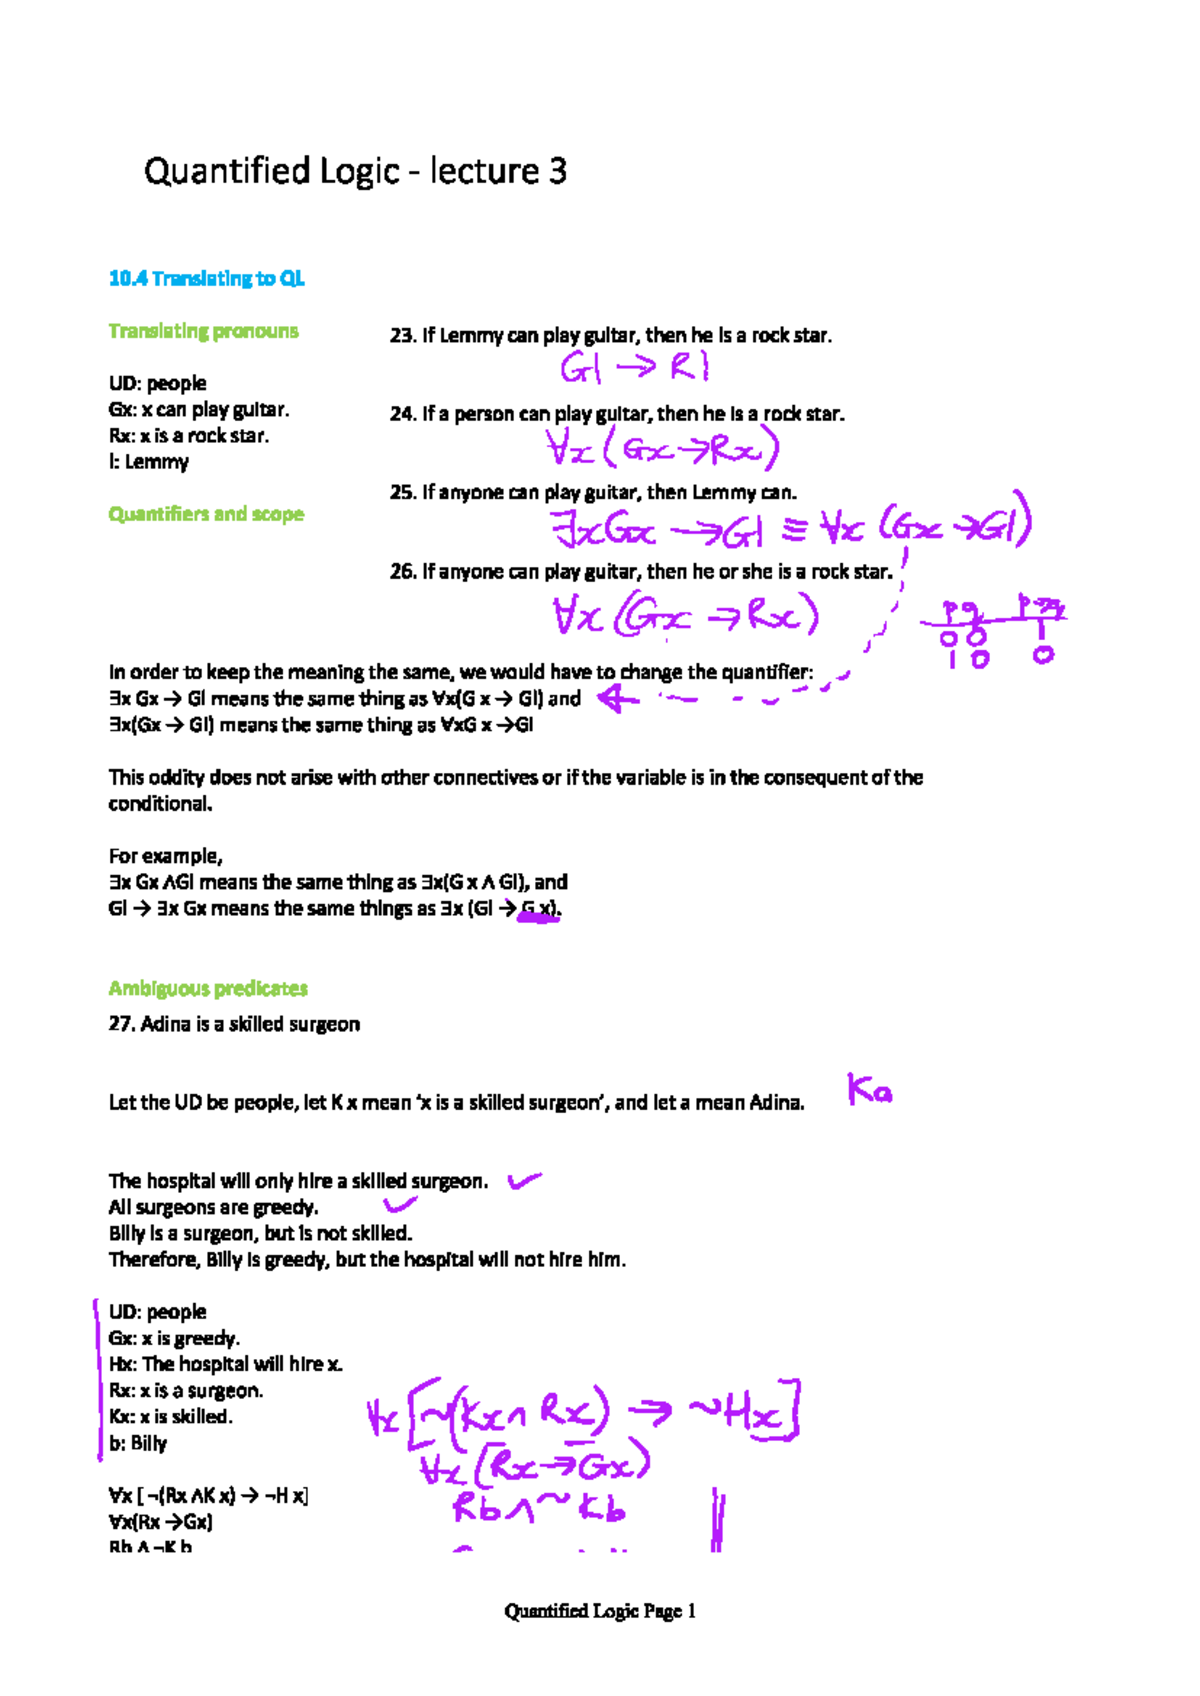 Quantified Logic - lecture 3
10.4 Translating to QL
Translating pronouns
UD: people
Gx: x can play guitar.
Rx: x is a rock star.
l: Lemmy
Quantifiers and scope
23. If Lemmy can play guitar, then he is a rock star.
Gl → Rl
24. If a person can play guitar, then he is a rock star.
∀x (Gx→Rx)
25. If anyone can play guitar, then Lemmy can.
∃xGx →Gl ≡ ∀x (Gx →Gl)
26. If anyone can play guitar, then he or she is a rock star.
∀x (Gx →Rx)
p q p→q
0 0 1
1 0 0
In order to keep the meaning the same, we would have to change the quantifier:
∃x Gx → Gl means the same thing as ∀x(G x → Gl) and
∃x(Gx → Gl) means the same thing as ∀xG x →Gl
This oddity does not arise with other connectives or if the variable is in the consequent of the
conditional.
For example,
∃x Gx ∧Gl means the same thing as ∃x(G x ∧ Gl), and
Gl → ∃x Gx means the same things as ∃x (Gl → G x).
Ambiguous predicates
27. Adina is a skilled surgeon
Let the UD be people, let K x mean ‘x is a skilled surgeon’, and let a mean Adina.
Ka
The hospital will only hire a skilled surgeon. ✓
All surgeons are greedy. ✓
Billy is a surgeon, but is not skilled.
Therefore, Billy is greedy, but the hospital will not hire him.
UD: people
Gx: x is greedy.
Hx: The hospital will hire x.
Rx: x is a surgeon.
Kx: x is skilled.
b: Billy
∀x [~(Kx∧ Rx) → ~Hx]
∀x (Rx→Gx)
Rb ∧ ~Kb
∀x [ ¬(Rx ∧K x) → ¬H x]
∀x(Rx →Gx)
Rb ∧ ¬K b
Quantified Logic Page 1